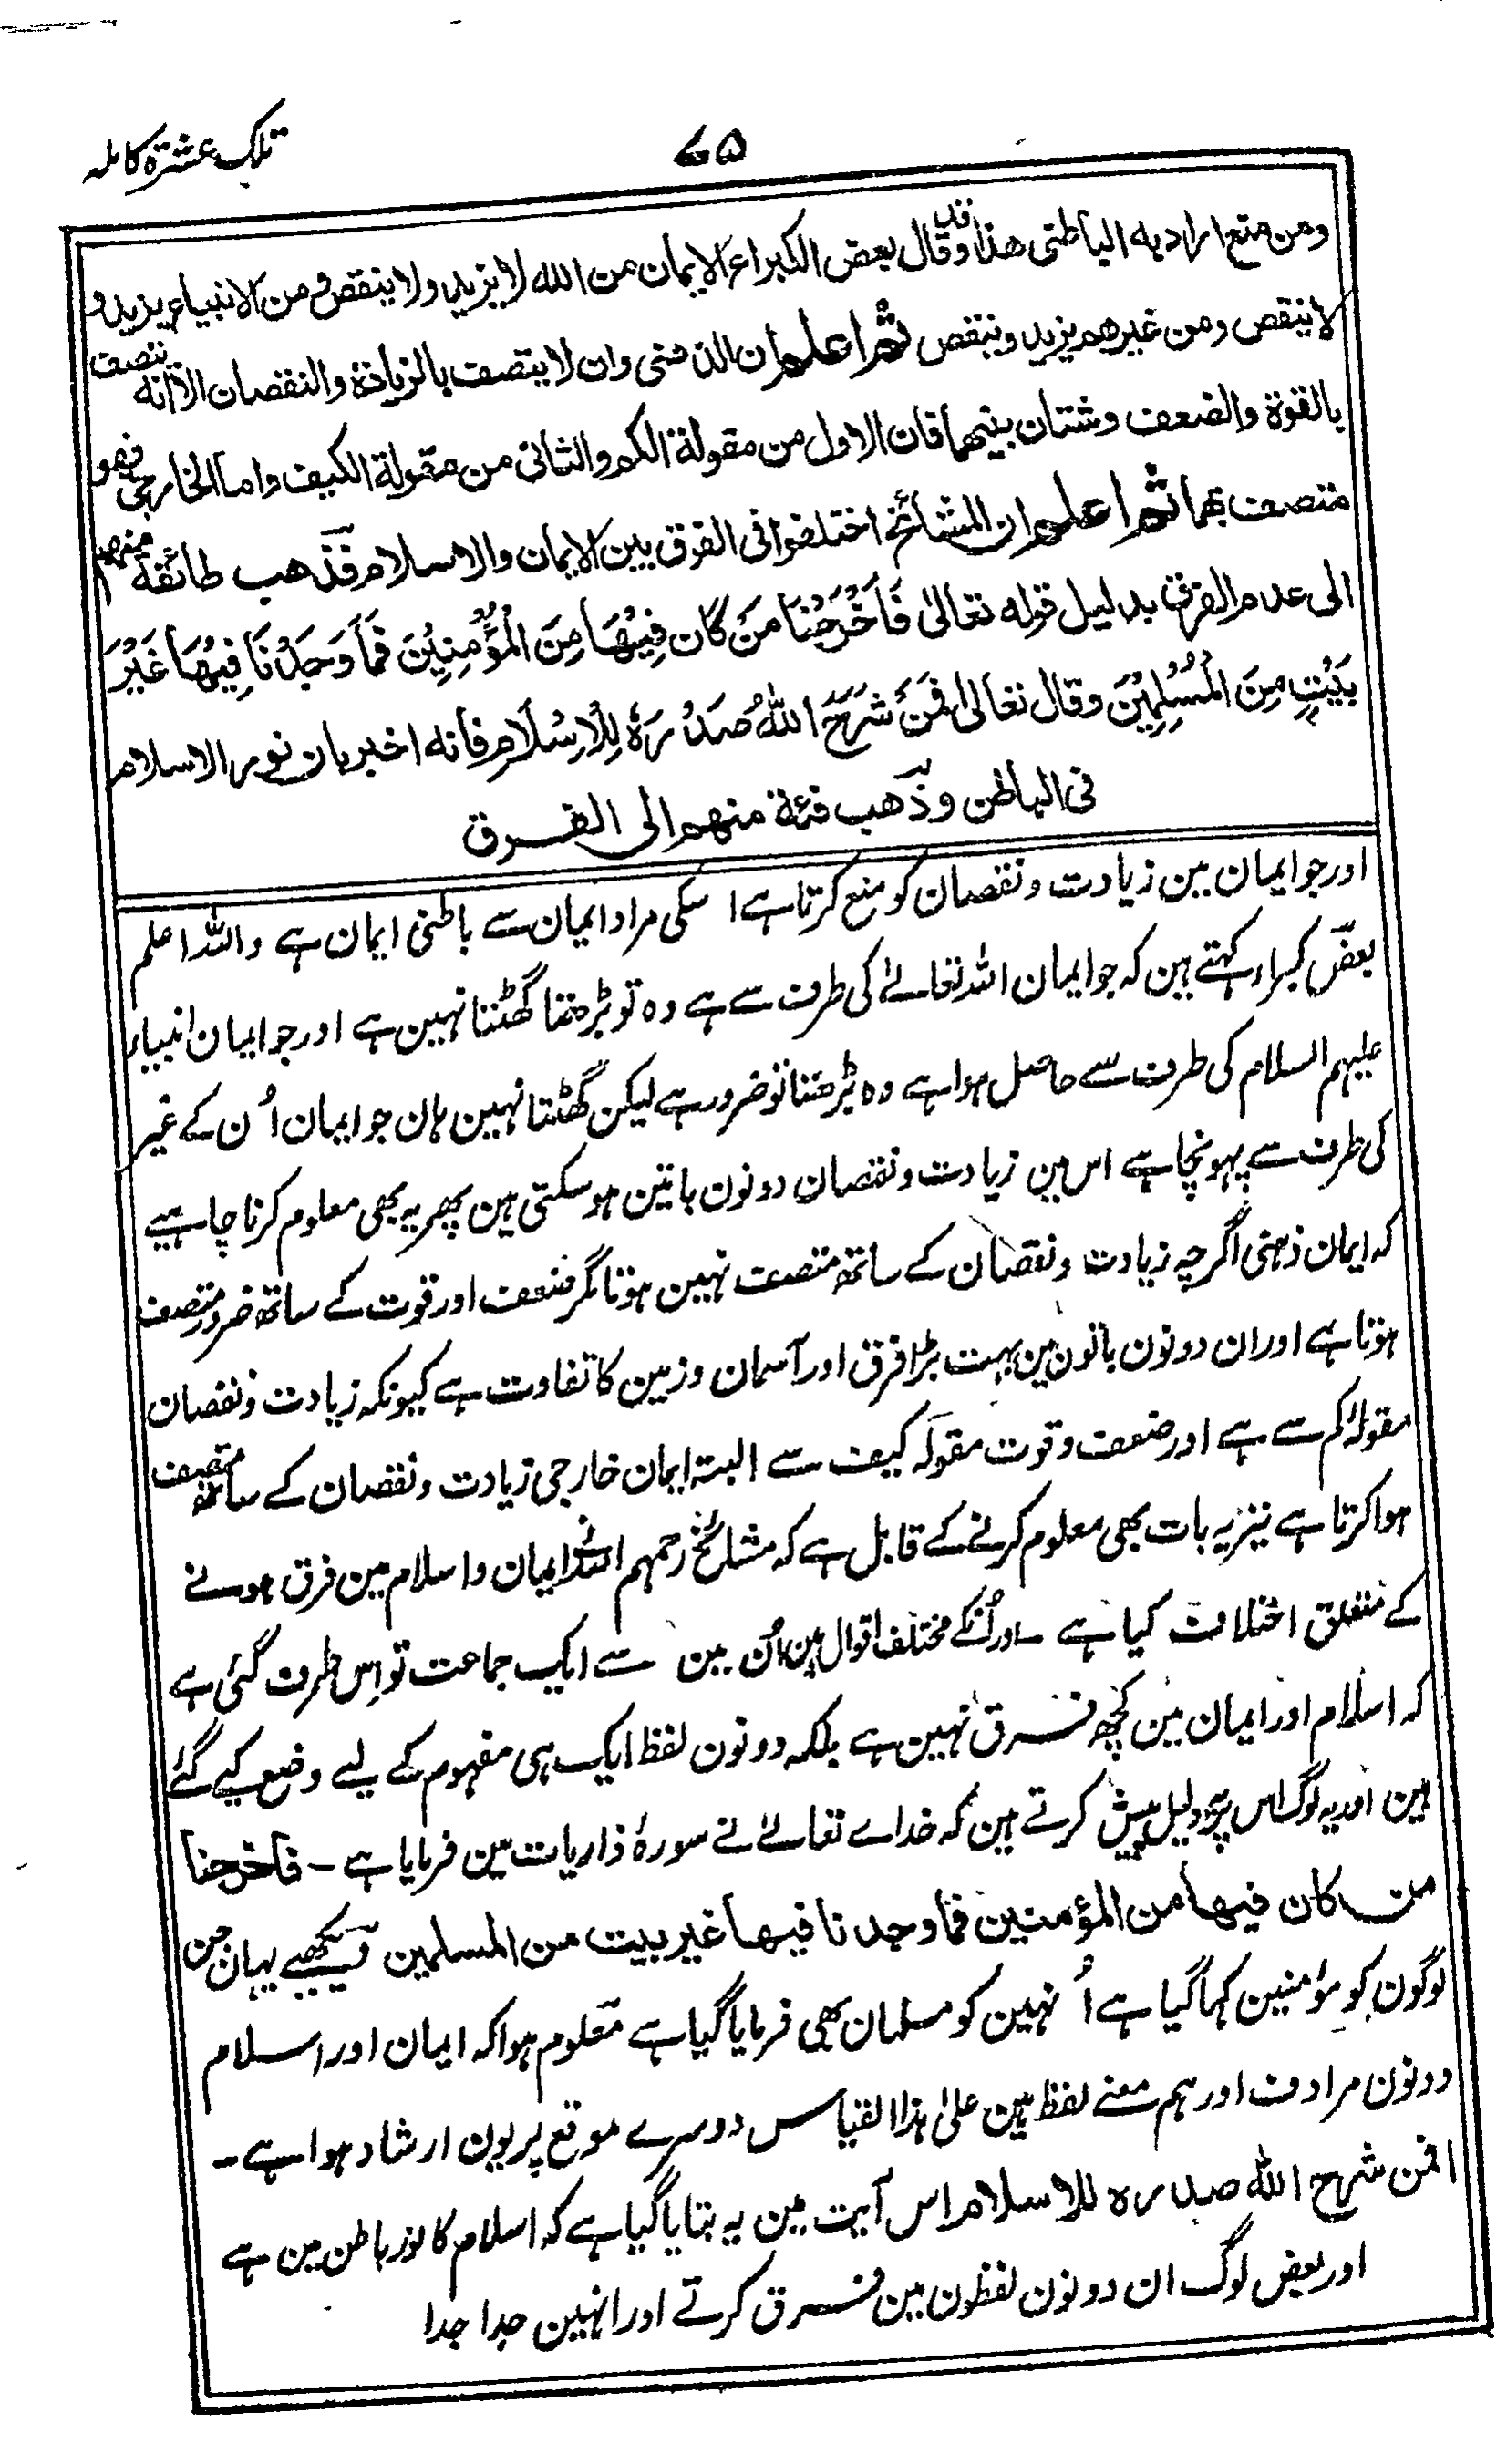 ۷۵
تلک عشرة کاملہ
ومن منع اراد به الباطنی هذا وقد قال بعض الکبراء الایمان من الله لا یزید ولا ینقص ومن الانبیاء یزید و
لا ینقص ومن غیرهم یزید وینقص ثم اعلم ان الذهنی وان لا یتصف بالزیادة والنقصان الا انه یتصف
بالقوة والضعف وشتان بینهما فان الاول من مقولة الکم والثانی من مقولة الکیف واما الخارجی فهو
متصف بهما ثم اعلم ان المشائخ اختلفوا فی الفرق بین الایمان والاسلام فذهب طائفة منهم
الی عدم الفرق بدلیل قوله تعالیٰ فَاَخْرَجْنَا مَنْ کَانَ فِیْهَا مِنَ الْمُؤْمِنِیْنَ فَمَا وَجَدْنَا فِیْهَا غَیْرَ
بَیْتٍ مِنَ الْمُسْلِمِیْنَ وقال تعالیٰ اَفَمَنْ شَرَحَ اللهُ صَدْرَهٗ لِلْاِسْلَامِ فانه اخبر بان نور الاسلام
فی الباطن وذهب فئة منهم الی الفرق
اور جو ایمان مین زیادت ونقصان کو منع کرتا ہے اسکی مراد ایمان سے باطنی ایمان ہے واللہ اعلم
بعض کبراء کہتے ہین کہ جو ایمان اللہ تعالےٰ کی طرف سے ہے وہ تو بڑھتا گھٹتا نہین ہے اور جو ایمان انبیاء
علیہم السلام کی طرف سے حاصل ہوا ہے وہ بڑھتا تو ضرور ہے لیکن گھٹتا نہین ہان جو ایمان اُن کے غیر
کی طرف سے پہونچا ہے اس مین زیادت ونقصان دونون باتین ہو سکتی ہین پھر یہ بھی معلوم کرنا چاہیے
کہ ایمان ذہنی اگرچہ زیادت ونقصان کے ساتھ متصف نہین ہوتا مگر ضعف اور قوت کے ساتھ ضرور متصف
ہوتا ہے اور ان دونون باتون مین بہت بڑا فرق اور آسمان وزمین کا تفاوت ہے کیونکہ زیادت ونقصان
مقولۂ کم سے ہے اور ضعف وقوت مقولہ کیف سے البتہ ایمان خارجی زیادت ونقصان کے ساتھ متصف
ہوا کرتا ہے نیز یہ بات بھی معلوم کرنے کے قابل ہے کہ مشائخ رحمہم اللہ نے ایمان واسلام مین فرق ہونے
کے متعلق اختلاف کیا ہے ۔ اور اُنکے مختلف اقوال ہین اُن مین سے ایک جماعت تو اِس طرف گئی ہے
کہ اسلام اور ایمان مین کچھ فرق نہین ہے بلکہ دونون لفظ ایک ہی مفہوم کے لیے وضع کیے گئے
ہین اور یہ لوگ اس پر یہ دلیل پیش کرتے ہین کہ خداے تعالےٰ نے سورۂ ذاریات مین فرمایا ہے ۔ فاخرجنا
من کان فیها من المؤمنین فما وجدنا فیها غیر بیت من المسلمین دیکھیے یہان جن
لوگون کو مؤمنین کہا گیا ہے اُنہین کو مسلمان بھی فرمایا گیا ہے معلوم ہوا کہ ایمان اور اسلام
دونون مرادف اور ہم معنے لفظ ہین علیٰ ہذا القیاس دوسرے موقع پر یون ارشاد ہوا ہے ۔
افمن شرح الله صدره للاسلام اس آیت مین یہ بتایا گیا ہے کہ اسلام کا نور باطن مین ہے
اور بعض لوگ ان دونون لفظون مین فرق کرتے اور انہین جدا جدا